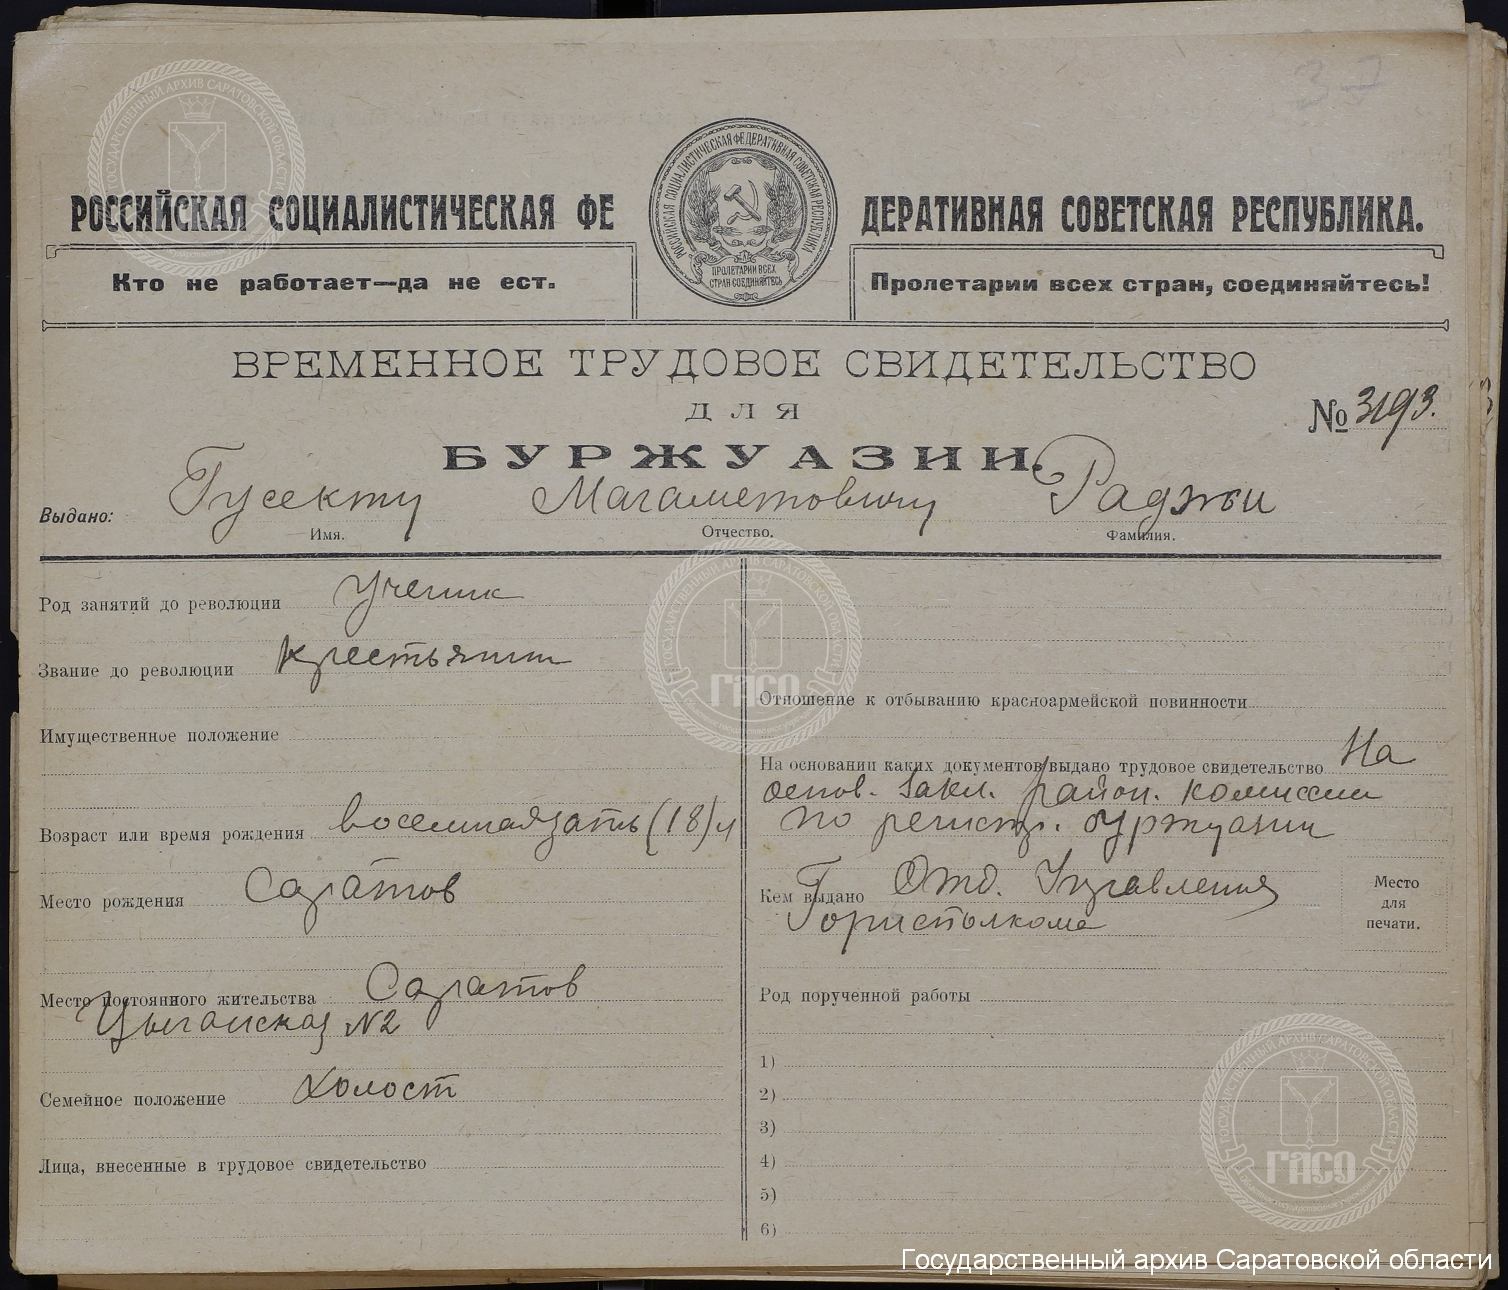 РОССИЙСКАЯ СОЦИАЛИСТИЧЕСКАЯ ФЕ ДЕРАТИВНАЯ СОВЕТСКАЯ РЕСПУБЛИКА.
РОССИЙСКАЯ СОЦИАЛИСТИЧЕСКАЯ ФЕДЕРАТИВНАЯ СОВЕТСКАЯ РЕСПУБЛИКА
ПРОЛЕТАРИИ ВСЕХ
СТРАН СОЕДИНЯЙТЕСЬ
Кто не работает—да не ест.
Пролетарии всех стран, соединяйтесь!
ВРЕМЕННОЕ ТРУДОВОЕ СВИДЕТЕЛЬСТВО
ДЛЯ
№ 3193.
БУРЖУАЗИИ.
Выдано: Гусекту Магаметовичу Раджи
Имя. Отчество. Фамилия.
Род занятий до революции Ученик
Звание до революции крестьянин
Имущественное положение
Возраст или время рождения восемнадцать (18)
Место рождения Саратов
Место постоянного жительства Саратов
Цыганская №2
Семейное положение холост
Лица, внесенные в трудовое свидетельство
Отношение к отбыванию красноармейской повинности
На основании каких документов выдано трудовое свидетельство На
основ. Закл. район. комиссии
по регистр. буржуазии
Кем выдано Отд. Управления
Горисполкома
Место
для
печати.
Род порученной работы
1)
2)
3)
4)
5)
6)
ГОСУДАРСТВЕННЫЙ АРХИВ САРАТОВСКОЙ ОБЛАСТИ
ГАСО
ГОСУДАРСТВЕННЫЙ АРХИВ САРАТОВСКОЙ ОБЛАСТИ
ГАСО
Государственный архив Саратовской области